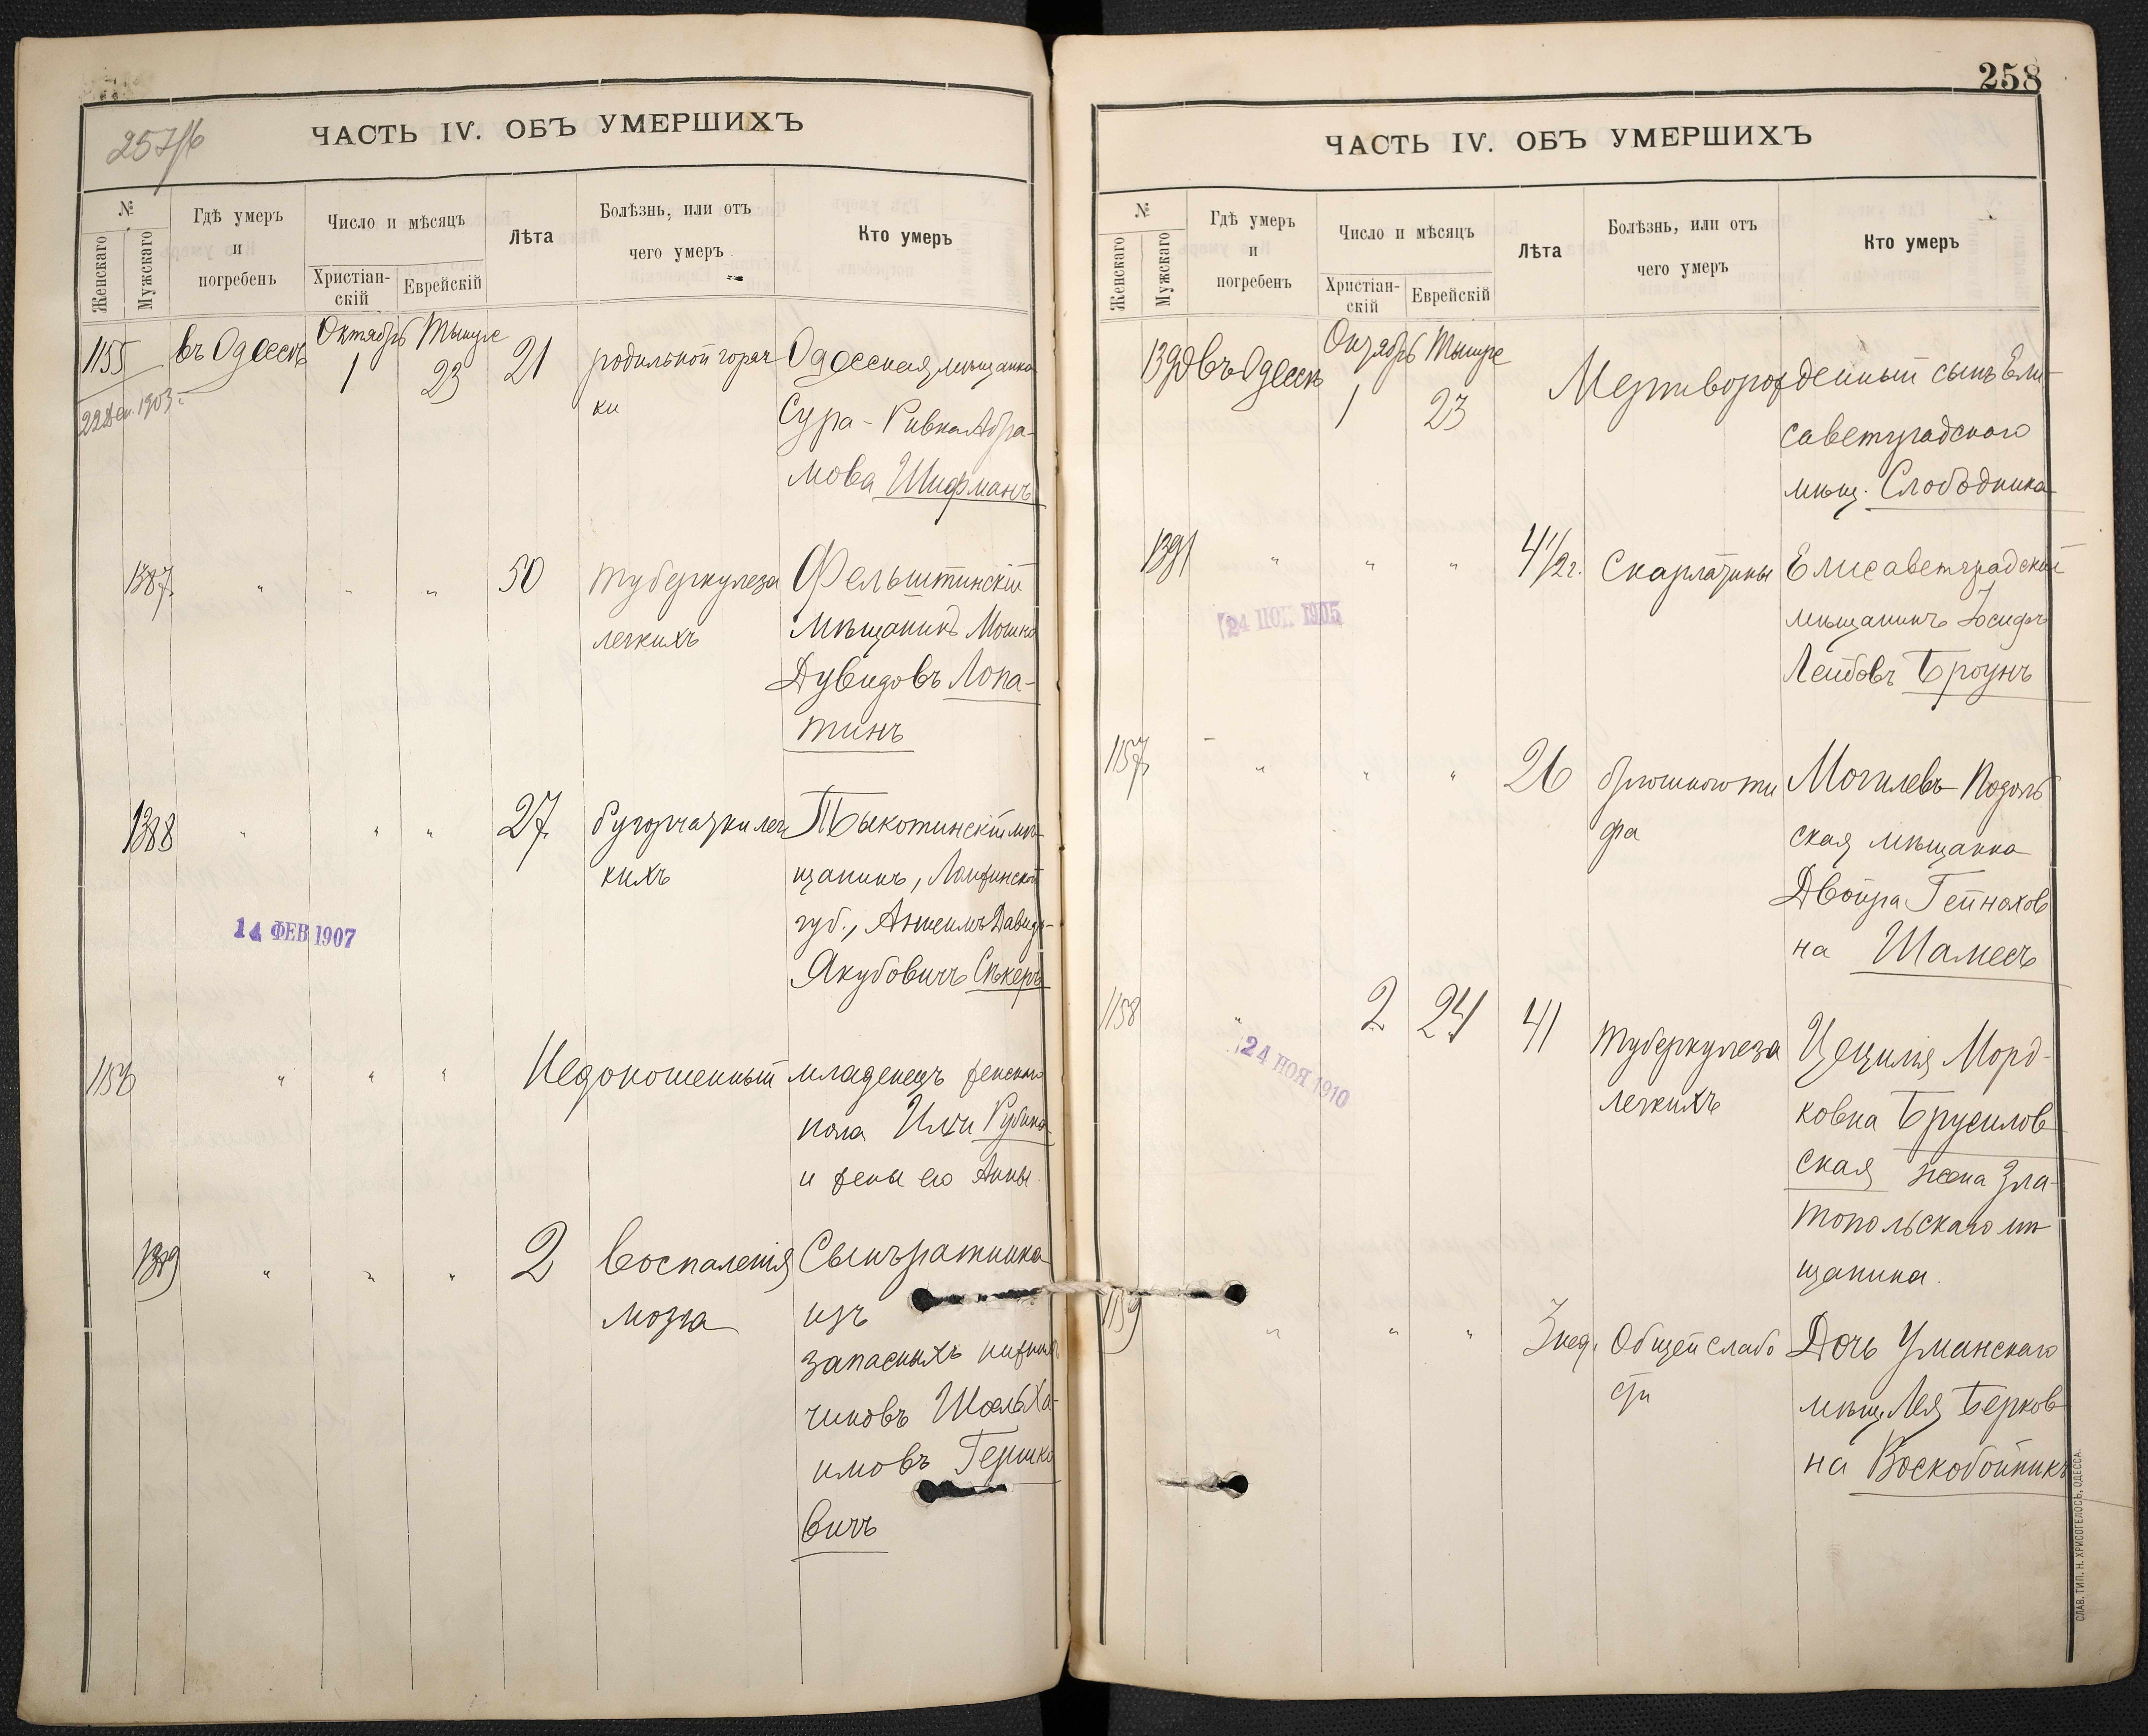 257/б
ЧАСТЬ IV. ОБЪ УМЕРШИХЪ
№
Женскаго
Мужскаго
Гдѣ умеръ
и
погребенъ
Число и мѣсяцъ
Христіан-
скій
Еврейскій
Лѣта
Болѣзнь, или отъ
чего умеръ
Кто умеръ
1155 въ Одессѣ Октябрь 1 Тишре 23 21 родильной горяч Одесская мѣщанка
22 Дек. 1903 ки Сура-Ривка Абра-
мова Шифманъ
1387 " " " 50 туберкулеза Фельштинскій
легкихъ мѣщанинъ
Дувидовъ Лопа-
тинъ
1388 " " " 27 бугорчатки лег Тыкотинскій мѣ-
кихъ щанинъ, Ломжинской
губ., Аншель Давидъ-
14 ФЕВ 1907
Якубовичъ Сѣкеръ
1156 " " " Недоношенный младенецъ женскаго
пола Ильи Рубина
и жены его Анны.
1389 " " " 2 воспаленія Сынъ ратника
мозга изъ
запасныхъ нижнихъ
чиновъ Шоель Ха-
имовъ Гершко
вичъ
258
ЧАСТЬ IV. ОБЪ УМЕРШИХЪ
№
Женскаго
Мужскаго
Гдѣ умеръ
и
погребенъ
Число и мѣсяцъ
Христіан-
скій
Еврейскій
Лѣта
Болѣзнь, или отъ
чего умеръ
Кто умеръ
1390 въ Одессѣ Октябрь 1 Тишре 23 Мертворожденный сынъ Ели-
саветградскаго
мѣщ. Слободника
1391 " " " 4 1/2 г. Скарлатины Елисаветградскій
24 НОЯ 1905
мѣщанинъ Іосифъ
Лейбовъ Броунъ
1157 " " " 26 брюшного ти Могилевъ-Подоль
фа ская мѣщанка
Двойра Гейнахов
на Шамесъ
1158 " 2 24 41 туберкулеза Цецилія Морд-
24 НОЯ 1910
легкихъ ковна Брусилов
ская жена Зла-
топольскаго мѣ
щанина.
1159 " " " 3 нед. Общей слабо Дочь Уманскаго
сти мѣщ. Лея Берков
на Воскобойникъ
СЛАВ. ТИП. Н. ХРИСОГЕЛОСЪ, ОДЕССА.